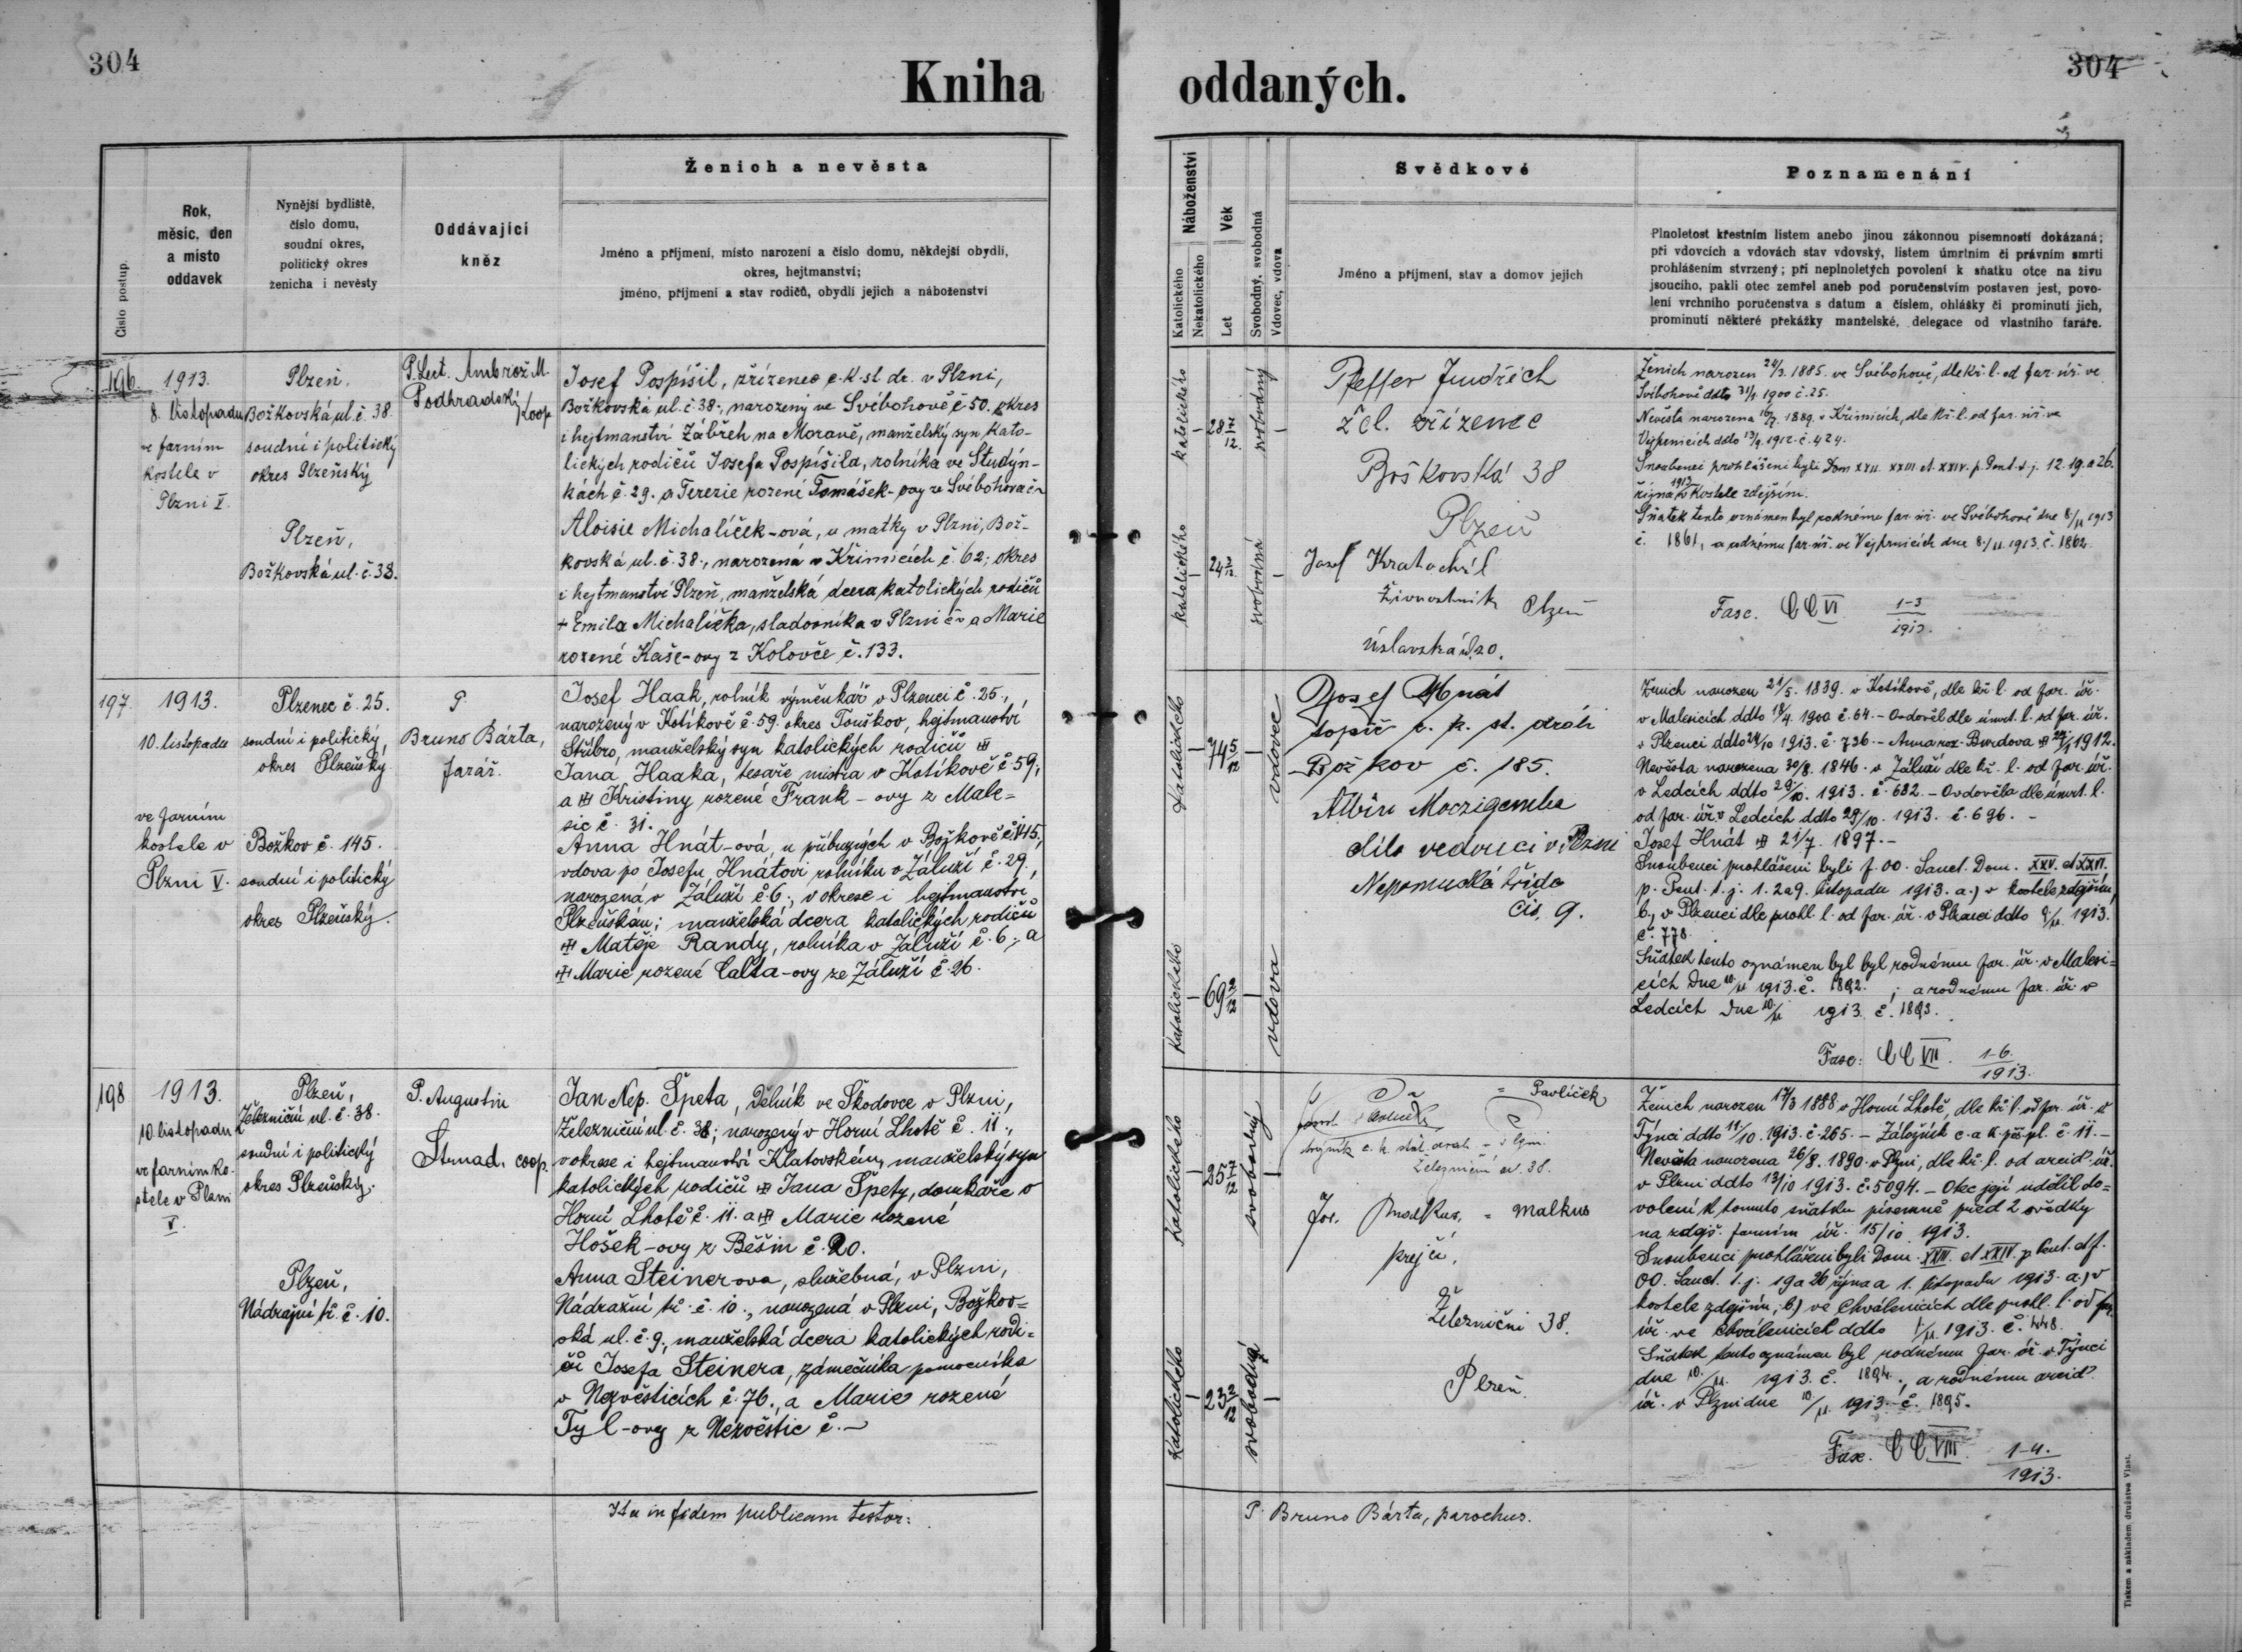 304
304
Kniha oddaných.
Číslo postup.
Rok,
měsíc, den
a místo
oddavek
Nynější bydliště,
číslo domu,
soudní okres,
politický okres
ženicha i nevěsty
Oddávající
kněz
Ženich a nevěsta
Jméno a příjmení, místo narození a číslo domu, někdejší obydlí,
okres, hejtmanství;
jméno, příjmení a stav rodičů, obydlí jejich a náboženství
Náboženství
Katolického
Nekatolického
Věk
Let
Svobodný, svobodná
Vdovec, vdova
Svědkové
Jméno a příjmení, stav a domov jejich
Poznamenání
Plnoletost křestním listem anebo jinou zákonnou písemností dokázaná;
při vdovcích a vdovách stav vdovský, listem úmrtním či právním smrti
prohlášením stvrzený; při neplnoletých povolení k sňatku otce na živu
jsoucího, pakli otec zemřel aneb pod poručenstvím postaven jest, povo-
lení vrchního poručenstva s datum a číslem, ohlášky či prominutí jich,
prominutí některé překážky manželské, delegace od vlastního faráře.
196
1913.
8. listopadu
ve farním
kostele v
Plzni V.
Plzeň,
Božkovská ul. č. 38.
soudní i politický
okres Plzeňský
Plzeň,
Božkovská ul. č. 38.
P. Lect. Ambrož M.
Podhradský
koop
Josef Pospíšil, zřízenec c. k. st. dr. v Plzni,
Božkovská ul. č. 38., narozený ve Svébohově č. 50. okres
i hejtmanství Zábřeh na Moravě, manželský syn kato-
lických rodičů Josefa Pospíšila, rolníka ve Studýn-
kách č. 29. a Terezie rozené Tomášek-ovy ze Svébohova č. -
Aloisie Michalíček-ová, u matky v Plzni, Bož-
kovská ul. č. 38., narozená v Křimicích č. 62; okres
i hejtmanství Plzeň, manželská dcera katolických rodičů
+ Emila Michalíčka, sladovníka v Plzni č. - a Marie
rozené Kaše-ovy z Kolovče č. 133.
katolického
28 7/12
svobodný
katolického
24 3/12
svobodná
Pfeffer Jindřich
žel. zřízenec
Boškovská 38
Plzeň
Josef Kratochvíl
živnostník Plzeň
Úslavská ul. 20.
Ženich narozen 24/3. 1885. ve Svébohově, dle kř. l. od far. úř. ve
Svébohově ddto 31/1 1900 č. 25.
Nevěsta narozena 16/7. 1889. v Křimicích, dle kř. l. od far. úř. ve
Vejprnicích ddto 13/9. 1912. č. 424.
Snoubenci prohlášeni byli Dom XXII. XXIII. et XXIV. p. Pent. t. j. 12. 19. a 26.
října 1913 v kostele zdejším.
Sňatek tento oznámen byl rodnému far. úř. ve Svébohově dne 8/11 1913
č. 1861, a rodnému far. úř. ve Vejprnicích dne 8./11. 1913. č. 1862.
Fasc. CC VI 1-3/1913.
197.
1913.
10. listopadu
ve farním
kostele v
Plzni V.
Plzenec č. 25.
soudní i politický
okres Plzeňský
Božkov č. 145.
soudní i politický
okres Plzeňský.
P.
Bruno Bárta,
farář.
Josef Haak, rolník výměnkář v Plzenci č. 25.,
narozený v Kotíkově č. 59. okres Touškov, hejtmanství
Stříbro, manželský syn katolických rodičů
Jana Haaka, tesaře mistra v Kotíkově č. 59,
a Kristiny rozené Frank-ovy z Male=
sic č. 31.
Anna Hnát-ová, u příbuzných v Božkově č. 145,
vdova po Josefu Hnátovi rolníku v Záluží č. 29,
narozená v Záluží č. 6., v okrese i hejtmanství
Plzeňském; manželská dcera katolických rodičů
Matěje Randy, rolníka v Záluží č. 6., a
Marie rozené Calta-ovy ze Záluží č. 26.
Katolického
74 5/12
vdovec
Katolického
69 2/12
vdova
Josef Hnát
topič c. k. st. dráh
Božkov č. 185.
Albín Moczigemba
dílo vedoucí v Plzni
Nepomucká třída
čís. 9.
Ženich narozen 21/5. 1839. v Kotíkově, dle kř. l. od far. úř.
v Malesicích ddto 18/4. 1900 č. 64. - Ovdověl dle úmrt. l. od far. úř.
v Plzenci ddto 24/10 1913. č. 736. - Anna roz. Burdova 1912.
Nevěsta narozena 30/8. 1846. v Záluží dle kř. l. od far. úř.
v Ledcích ddto 29/10. 1913. č. 682. - Ovdověla dle úmrt. l.
od far. úř. v Ledcích ddto 29/10. 1913. č. 696. -
Josef Hnát 21/7. 1897. -
Snoubenci prohlášeni byli f. OO. Sanct. Dom. XXV. et XXVI.
p. Pent. t. j. 1. 2 a 9. listopadu 1913. a.) v kostele zdejším,
b., v Plzenci dle prohl. l. od far. úř. v Plzenci ddto 9/11. 1913.
č. 778.
Sňatek tento oznámen byl byl rodnému far. úř. v Malesi=
cích dne 10/11 1913. č. 1892. ; a rodnému far. úř. v
Ledcích dne 10/11 1913. č. 1893.
Fasc: CC VII. 1-6./1913.
198
1913.
10. listopadu
ve farním ko-
stele v Plzni
V.
Plzeň,
Železniční ul. č. 38.
soudní i politický
okres Plzeňský.
Plzeň,
Nádražní tř. č. 10.
P. Augustin
Štrnad, coop.
Jan Nep. Špeta, dělník ve Škodovce v Plzni,
Železniční ul. č. 38; narozený v Horní Lhotě č. 11.,
v okrese i hejtmanství Klatovském, manželský syn
katolických rodičů Jana Špety, domkáře v
Horní Lhotě č. 11. a Marie rozené
Hošek-ovy z Běšin č. 20.
Anna Steinerova, služebná, v Plzni,
Nádražní tř. č. 10., narozená v Plzni, Božkov=
ská ul. č. 9., manželská dcera katolických rodi=
čů Josefa Steinera, zámečníka pomocníka
v Nezvěsticích č. 76., a Marie rozené
Tyl-ovy z Nezvěstic č. -
Katolického
25 7/12
svobodný
Katolického
23 2/12
svobodná
= Pavlíček
strojník c. k. stát. drah - v Plzni.
Železniční ul. 38.
Jos. Malkus, = Malkus
krejčí,
Železniční 38.
Plzeň.
Ženich narozen 17/3 1888 v Horní Lhotě, dle kř. l. od far. úř. v
Týnci ddto 11/10. 1913. č. 265. - Záložník c. a k. pěš. pl. č. 11. -
Nevěsta narozena 26/8. 1890. v Plzni, dle kř. l. od arcid. úř.
v Plzni ddto 13/10 1913. č. 5094. - Otec její udělil do=
volení k tomuto sňatku písemně před 2 svědky
na zdejš. farním úř. 15/10 1913.
Snoubenci prohlášeni byli Dom. XXIII. et XXIV. p Pent. et f.
OO. Sanct. t. j. 19 a 26 října a 1. listopadu 1913. a.) v
kostele zdejším; b.) ve Chválenicích dle prohl. l. od far.
úř. ve Chválenicích ddto 1/11. 1913. č. 448.
Sňatek tento oznámen byl rodnému far. úř. v Týnci
dne 10./11. 1913. č. 1894., a rodnému arcid.
úř. v Plzni dne 10/11. 1913. č. 1895.
Fasc. CC VIII 1-4./1913.
Ita in fidem publicam testor:
P. Bruno Bárta, parochus.
Tiskem a nákladem družstva Vlast.